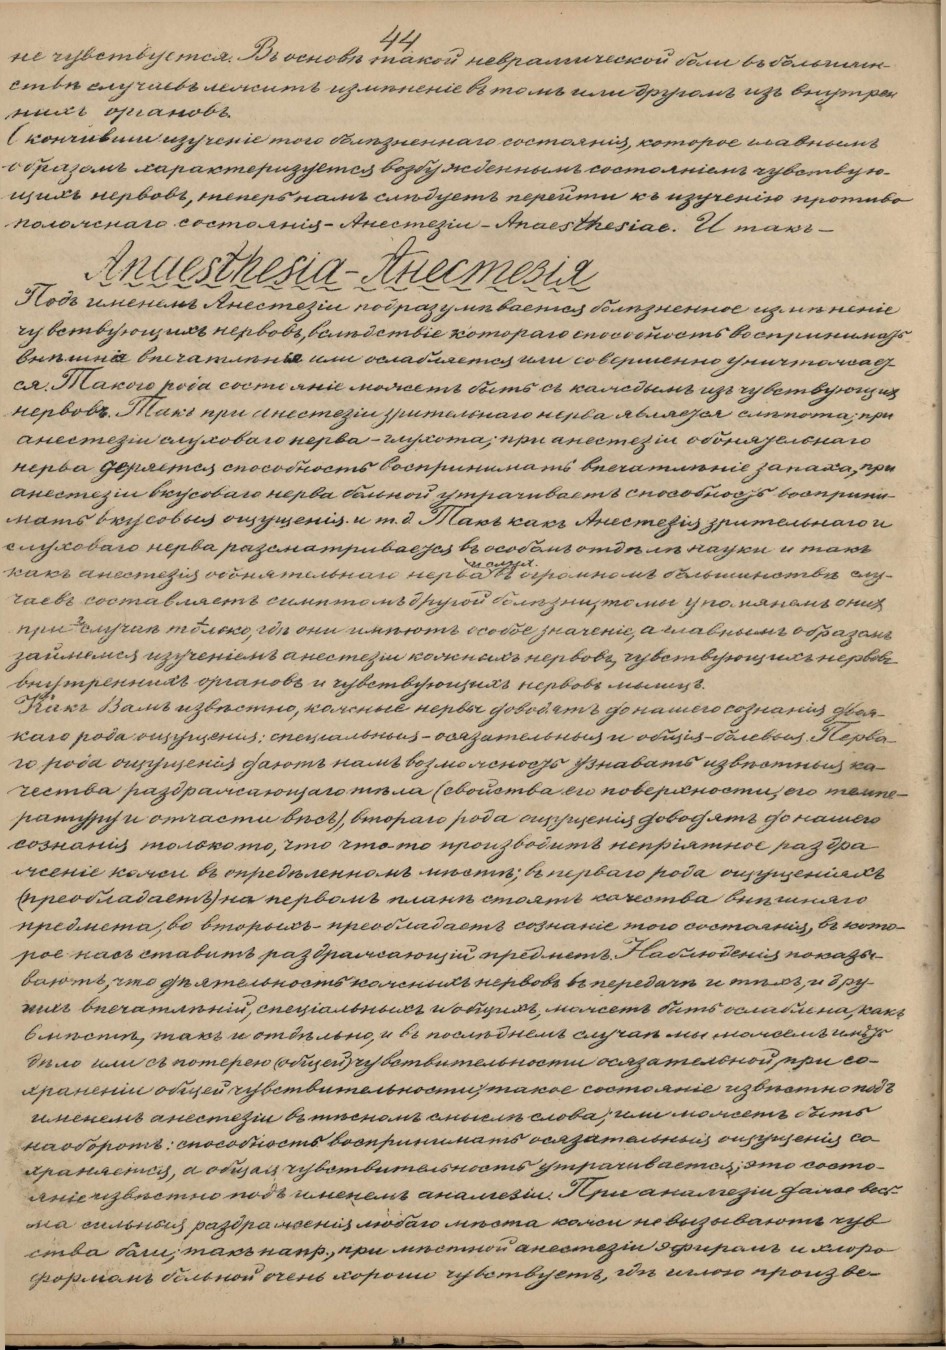 44
не чувствуется. Въ основѣ такой невралгической боли въ большин-
ствѣ случаевъ лежитъ измѣненіе въ томъ или другомъ изъ внутрен
нихъ органовъ.
Окончивши изученіе того болѣзненнаго состоянія, которое главнымъ
образомъ характеризуется возбужденнымъ состояніемъ чувствую-
щихъ нервовъ, теперь намъ слѣдуетъ перейти къ изученію противо
положнаго состоянія - Анестезіи - Anaesthesiae. И такъ -
Anaesthesia - Анестезія
Подъ именемъ Анестезіи подразумѣвается болѣзненное измѣненіе
чувствующихъ нервовъ, вслѣдствіе котораго способность воспринимать
внѣшнія впечатлѣнія или ослабляется или совершенно уничтожает-
ся. Такого рода состояніе можетъ быть съ каждымъ изъ чувствующихъ
нервовъ. Такъ при анестезіи зрительнаго нерва является слѣпота; при
анестезіи слуховаго нерва - глухота; при анестезіи обонятельнаго
нерва теряется способность воспринимать впечатлѣніе запаха, при
анестезіи вкусоваго нерва больной утрачиваетъ способность восприни-
мать вкусовыя ощущенія и т.д. Такъ какъ Анестезія зрительнаго и
слуховаго нерва разсматривается въ особомъ отдѣлѣ науки и такъ
какъ анестезія обонятельнаго нерва и слух. въ огромномъ большинствѣ слу-
чаевъ составляетъ симптомъ другой болѣзни, то мы упомянемъ о нихъ
при случаѣ только, гдѣ они имѣютъ особое значеніе, а главнымъ образомъ
займемся изученіемъ анестезіи кожныхъ нервовъ, чувствующихъ нервовъ
внутреннихъ органовъ и чувствующихъ нервовъ мышцъ.
Какъ Вамъ извѣстно, кожные нервы доводятъ до нашего сознанія двоя-
каго рода ощущенія: спеціальныя - осязательныя и общія - болевыя. Перва-
го рода ощущенія даютъ намъ возможность узнавать извѣстныя ка-
чества раздражающаго тѣла (свойства его поверхности, его темпе-
ратуру и отчасти вѣсъ), втораго рода ощущенія доводятъ до нашего
сознанія только то, что что-то производитъ непріятное раздра
женіе кожи въ опредѣленномъ мѣстѣ; въ перваго рода ощущеніяхъ
(преобладаетъ) на первомъ планѣ стоятъ качества внѣшняго
предмета, во вторыхъ - преобладаетъ сознаніе того состоянія, въ кото-
рое насъ ставитъ раздражающій предметъ. Наблюденія показы-
ваютъ, что дѣятельность кожныхъ нервовъ въ передачѣ и тѣхъ, и дру-
гихъ впечатлѣній, спеціальныхъ и общихъ, можетъ быть ослаблена, какъ
вмѣстѣ, такъ и отдѣльно, и въ послѣднемъ случаѣ мы можемъ имѣть
дѣло или съ потерею (общей) чувствительности осязательной, при со-
храненіи общей чувствительности; такое состояніе извѣстно подъ
именемъ анестезіи въ тѣсномъ смыслѣ слова; или можетъ быть
наоборотъ: способность воспринимать осязательныя ощущенія со
храняется, а общая чувствительность утрачивается; это состо-
яніе извѣстно подъ именемъ аналгезіи. При аналгезіи даже весь-
ма сильныя раздраженія любаго мѣста кожи не вызываютъ чув
ства боли; такъ напр., при мѣстной анестезіи эфиромъ и хлоро
формомъ больной очень хорошо чувствуетъ, гдѣ иглою произве-